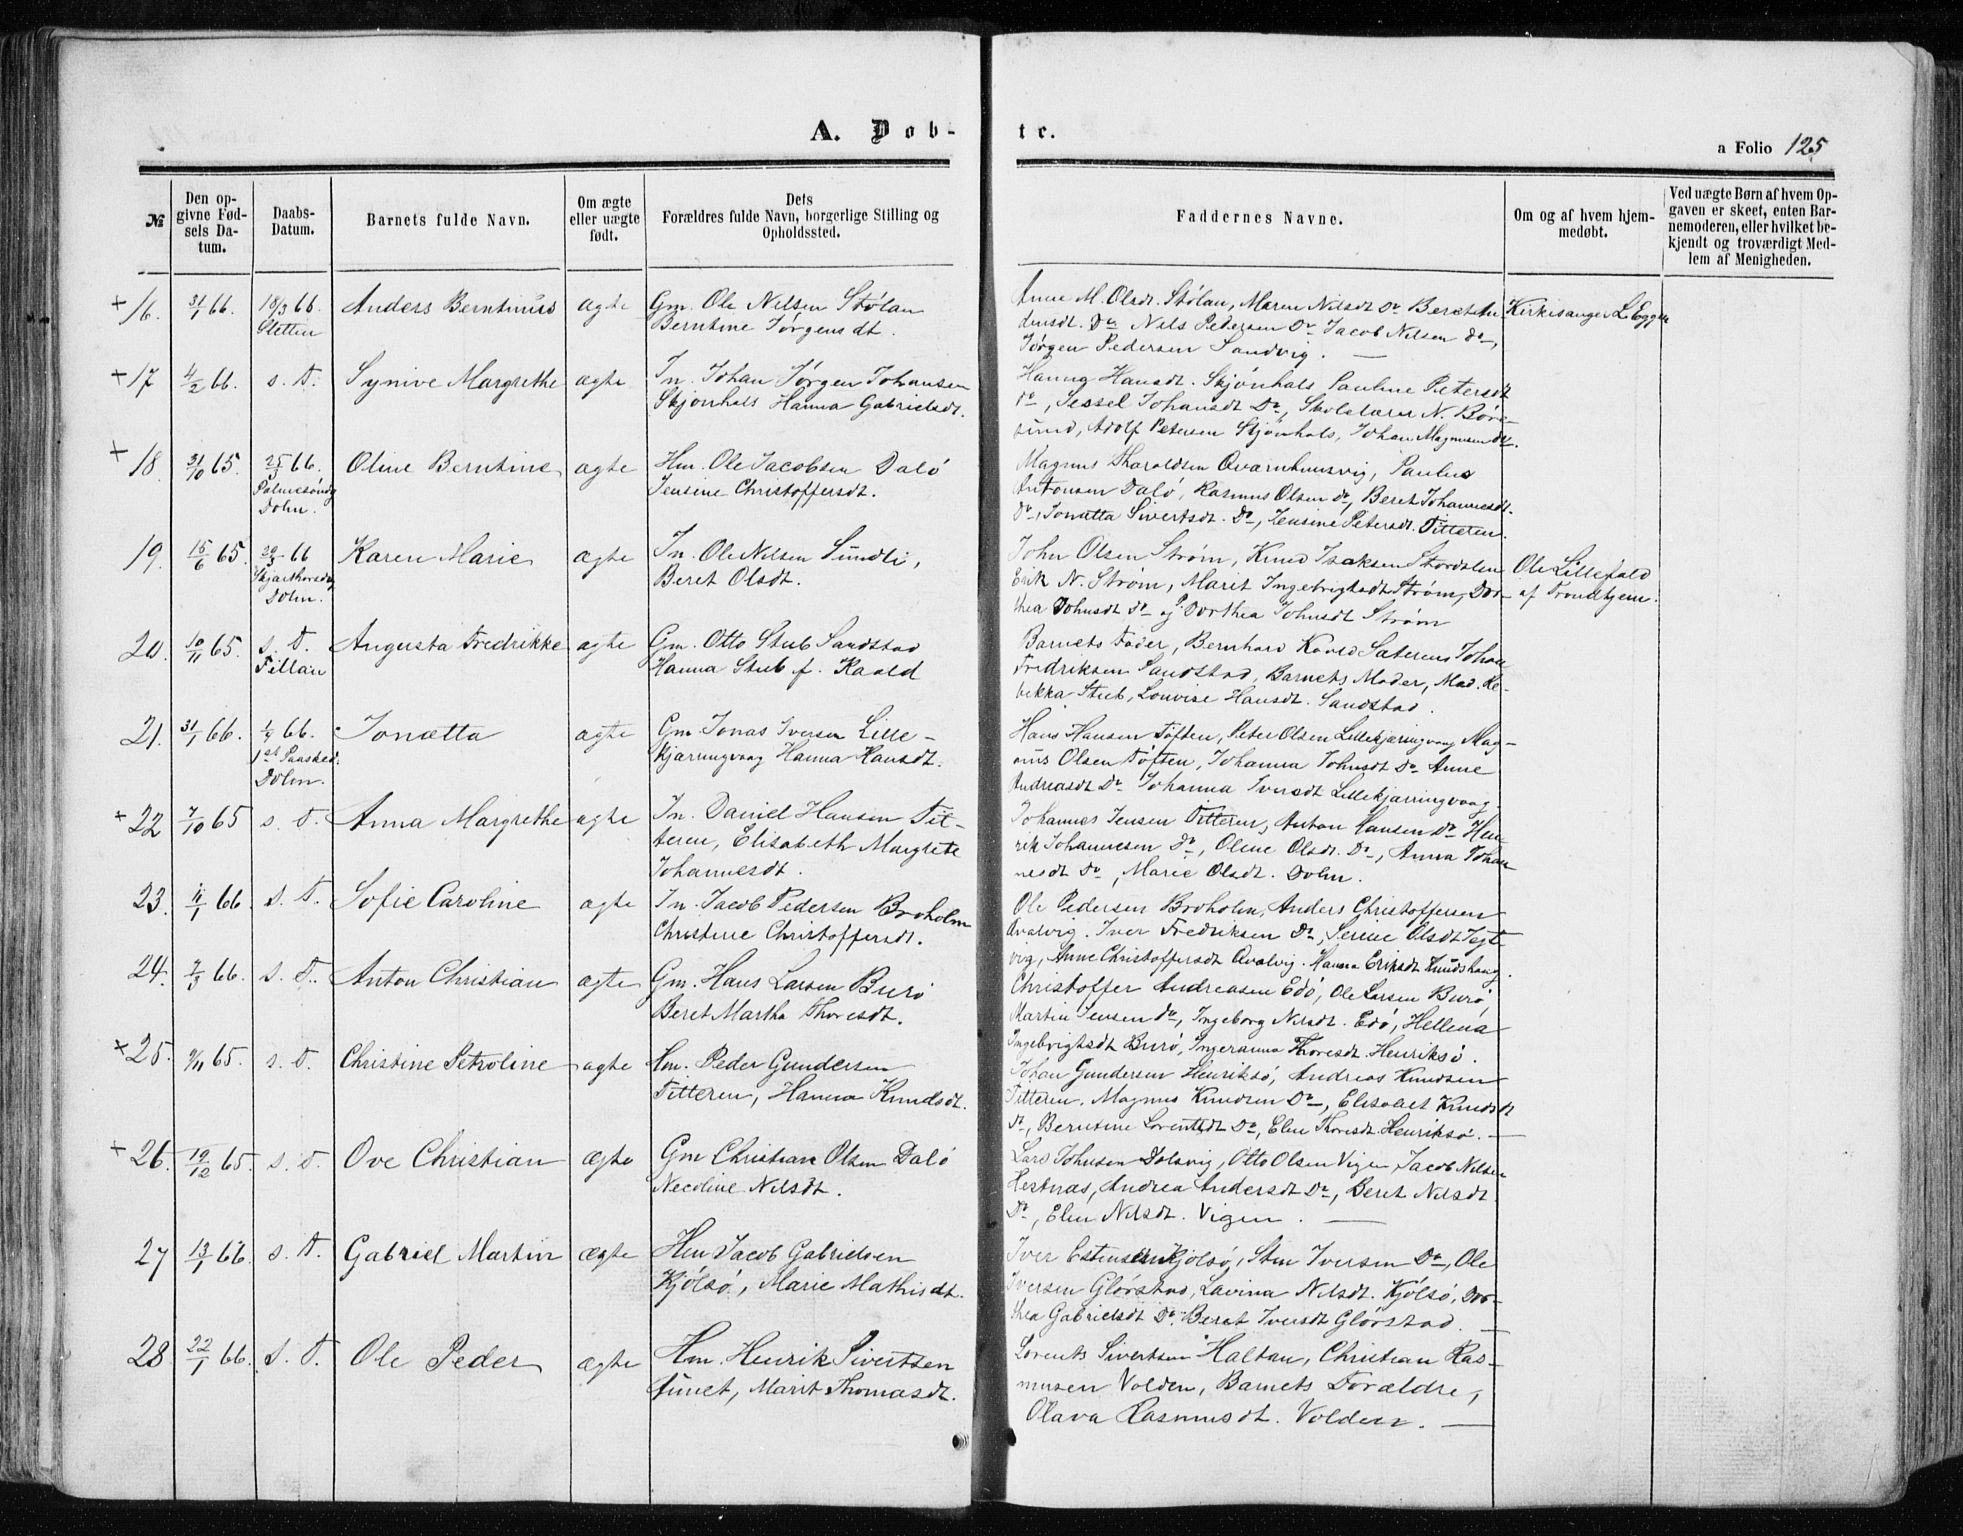 A. Døb-
te.
a Folio 125
№
Den op-
givne Fød-
sels Da-
tum.
Daabs-
Datum.
Barnets fulde Navn.
Om ægte
eller uægte
født.
Dets
Forældres fulde Navn, borgerlige Stilling og
Opholdssted.
Faddernes Navne.
Om og af hvem hjem-
medøbt.
Ved uægte Børn af hvem Op-
gaven er skeet, enten Bar-
nemoderen, eller hvilket be-
kjendt og troværdigt Med-
lem af Menigheden.
+ 16. 31/1 66. 18/3 66 Anders Berntinus ægte Gm. Ole Nilsen Stølan
Sletten Berntine Jørgensdt.
Anne M. Olsdt. Stølan, Maren Nilsdt Do Beret An-
densdt. Do Nils Pedersen Do Jacob Nilsen do,
Jørgen Pedersen Sandvig. —
Kirkesanger L Eggen
+ 17 4/2 66. s. D. Synive Margrethe ægte In. Johan Jørgen Johansen
Skjønhals Hanna Gabrielsdt.
Hanna Hansdt. Skjønhals Pauline Petersdt
do, Sessel Johansdt Do, Skolelærer N. Børø-
sund, Adolf Petersen Skjønhals, Johan Magnusen do.
+ 18. 31/10 65. 25/3 66. Oline Berntine ægte Hm. Ole Jacobsen Dalø
Palmesøndg Jensine Christoffersdt.
Dolm.
Magnus Haroldsen Qvarnhuusvig, Paulus
Antonsen Dalø, Rasmus Olsen do, Beret Johannesdt.
Do, Jonetta Sivertsdt. Do, Jensine Petersdt. Titteren.
19. 15/6 65. 29/3 66 Karen Marie ægte In. Ole Nilsen Sundli,
Skjærthorsdag Beret Olsdt.
Dolm.
John Olsen Strøm, Knud Isaksen Stordalen
Erik N. Strøm, Marit Ingebrigtsdt Strøm, Dor-
thea Johnsdt do og Dorthea Johnsdt Strøm
Ole Lillefald
af Trondhjem.
20. 10/11 65. s. D. Augusta Fredrikke ægte Gm. Otto Stub Sandstad
Fillan Hanna Stub f. Kaald
Barnets Fader, Bernhard Kaald Sateren Johan
Fredriksen Sandstad, Barnets Moder, Mad. Re-
bekka Stub, Lovise Hansdt. Sandstad.
21. 31/1 66. 1/4 66. Jonetta ægte Gm. Jonas Iversen Lille-
1ste Paasked. kjærringvaag Hanna Hansdt.
Dolm.
Hans Hansen Tøften, Peter Olsen Lillekjærringvaag Mag-
nus Olsen Tøften, Johanna Johnsdt Do Anne
Andreasdt Do Johanna Iversdt Lillekjærringvaag.
+ 22 7/10 65 s. D. Anna Margrethe ægte In. Daniel Hansen Tit-
teren, Elisabeth Margrete
Johannesdt.
Johannes Jensen Titteren, Anton Hansen Do Hen-
rik Johannesen Do, Oline Olsdt. Do, Anna Johan-
nesdt Do, Marie Olsdt. Dolm.
23. 11/1 66. s. D. Sofie Caroline ægte In. Jacob Pedersen Broholm
Christine Christoffersdt.
Ole Pedersen Broholm, Anders Christoffersen
Qvalvig. Iver Fredriksen Do, Serine Olsdt Jegt-
vig, Anne Christoffersdt Qvalvig. Hanna Eriksdt Knudshaug.
24. 7/3 66. s. D. Anton Christian ægte Gm. Hans Larsen Burø
Beret Martha Thoresdt.
Christoffer Andreasen Edø, Ole Larsen Burø,
Martin Jensen do, Ingeborg Nilsdt. Edø, Hellena
Ingebrigtsdt Burø, Ingeranna Thoresdt. Henriksø.
+ 25. 9/11 65. s. D. Christine Petroline ægte Hm. Peder Gundersen
Titteren, Hanna Knudsdt.
Johan Gundersen Henriksø, Andreas Knudsen
Titteren. Magnus Knudsen Do, Elisabet Knudsdt
Do, Berntine Lorentsdt Do, Elen Thoresdt Henriksø. —
+ 26. 19/12 65. s. D. Ove Christian ægte Gm Christian Olsen Dalø
Necoline Nilsdt.
Lars Johnsen Dolsvig, Otto Olsen Vigen Jacob Nilsen
Hestnæs, Andrea Andersdt Do, Beret Nilsdt
Do, Elen Nilsdt. Vigen. —
27 13/1 66. s. D. Gabriel Martin ægte Hm Jacob Gabrielsen
Kjølsø, Marie Mathisdt.
Iver Estensen Kjølsø, Sten Iversen Do, Ole
Iversen Glørstad, Lavina Nilsdt. Kjølsø, Dor-
thea Gabrielsdt Do. Beret Iversdt Glørstad. —
28. 22/1 66. s. D. Ole Peder ægte Hm. Henrik Sivertsen
Aunet, Marit Thomasdt.
Lorents Sivertsen Haltan, Christian Ras-
musen Volden, Barnets Forældre,
Olava Rasmusdt. Volden. —